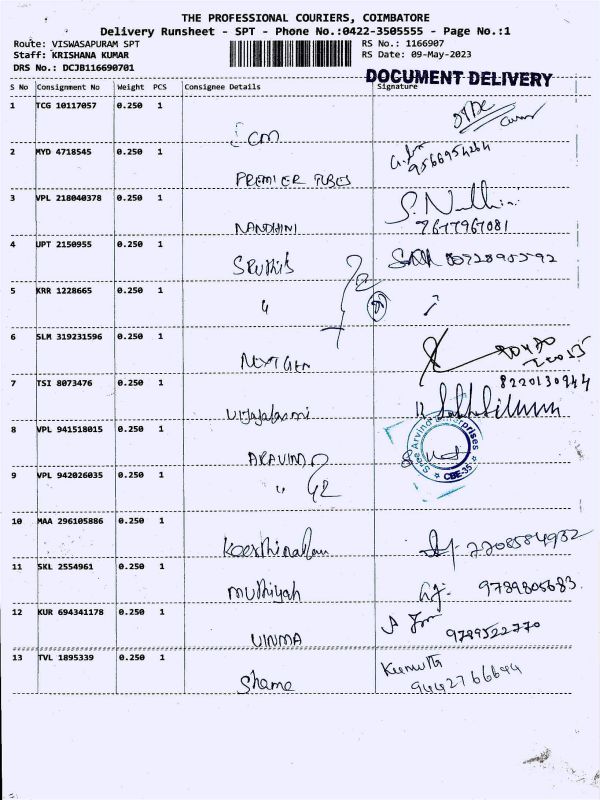 THE PROFESSIONAL COURIERS, COIMBATORE
Delivery Runsheet - SPT - Phone No.:0422-3505555 - Page No.:1
Route: VISWASAPURAM SPT
RS No.: 1166907
Staff: KRISHANA KUMAR
RS Date: 09-May-2023
DRS No.: DCJB116690701
DOCUMENT DELIVERY
S No Consignment No Weight PCS Consignee Details Signature
1 TCG 10117057 0.250 1
2 MYD 4718545 0.250 1
9566954264
PREMIER TUBES
3 VPL 218040378 0.250 1
NANDHINI
7617967081
4 UPT 2150955 0.250 1
5 KRR 1228665 0.250 1
6 SLM 319231596 0.250 1
NEXTGEN
7 TSI 8073476 0.250 1
8220130944
8 VPL 941518015 0.250 1
Shree Arvind Enterprises
* CBE-35 *
ARAVIND
9 VPL 942026035 0.250 1
10 MAA 296105886 0.250 1
2208584932
11 SKL 2554961 0.250 1
Muthiyah
9789805683
12 KUR 694341178 0.250 1
9789522770
13 TVL 1895339 0.250 1
Shame
9442766694